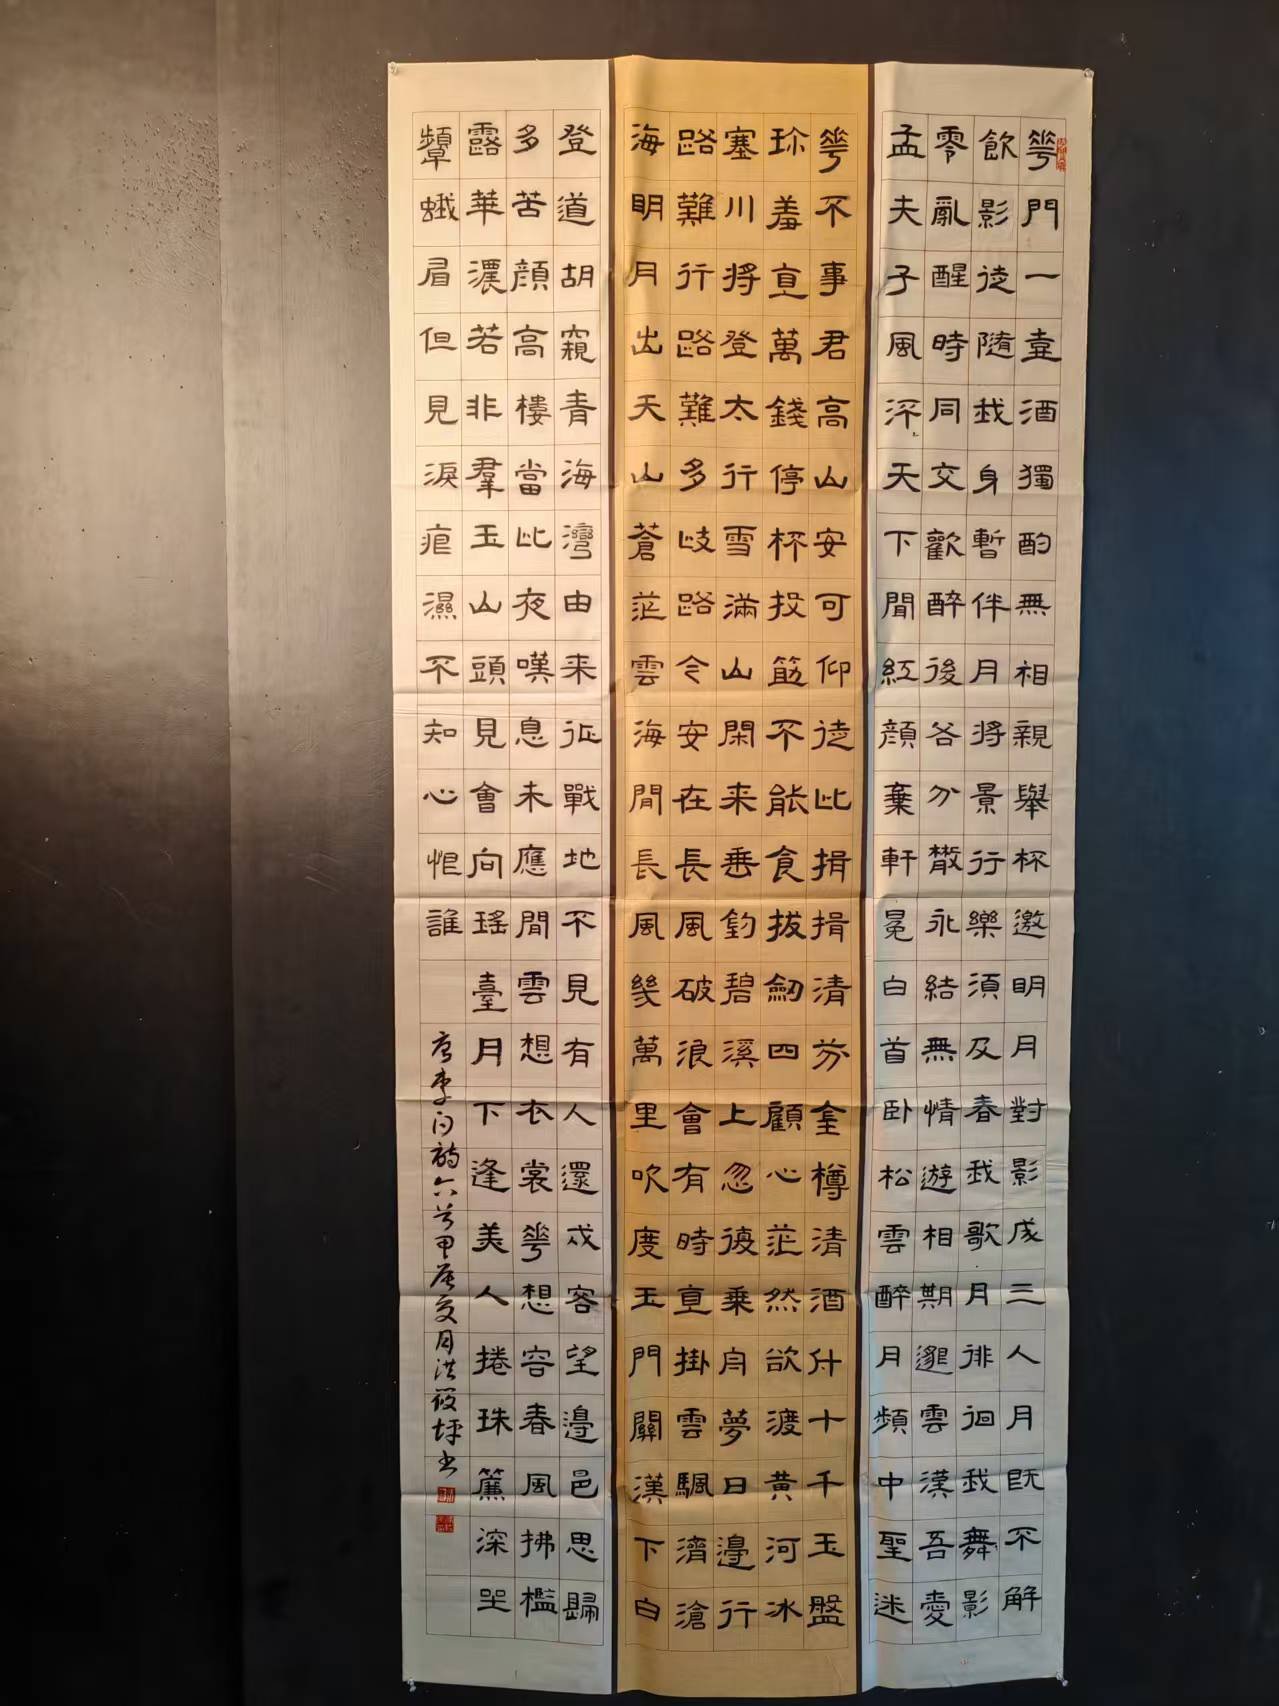 花門一壺酒獨酌無相親舉杯邀明月對影成三人月既不解
飲影徒隨我身暫伴月將景行樂須及春我歌月徘徊我舞影
零亂醒時同交歡醉後各分散永結無情遊相期邈雲漢吾愛
孟夫子風深天下聞紅顏棄軒冕白首臥松雲醉月頻中聖迷
花不事君高山安可仰徒此揖揖清芬金樽清酒斗十千玉盤
珍羞直萬錢停杯投筯不能食拔劍四顧心茫然欲渡黃河冰
塞川將登太行雪滿山閑来垂釣碧溪上忽復乘舟夢日邊行
路難行路難多歧路今安在長風破浪會有時直掛雲颿濟滄
海明月出天山蒼茫雲海間長風幾萬里吹度玉門關漢下白
登道胡窺青海灣由来征戰地不見有人還戍容望邊邑思歸
多苦顏高樓當此夜嘆息未應閒雲想衣裳花想容春風拂檻
露華濃若非羣玉山頭見會向瑤臺月下逢美人捲珠簾深坐
顰蛾眉但見淚痕濕不知心恨誰
唐李白詩六首甲辰夏月洪筱坪書